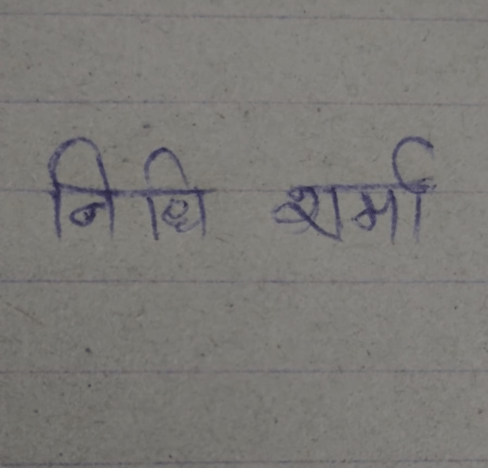 निधि शर्मा